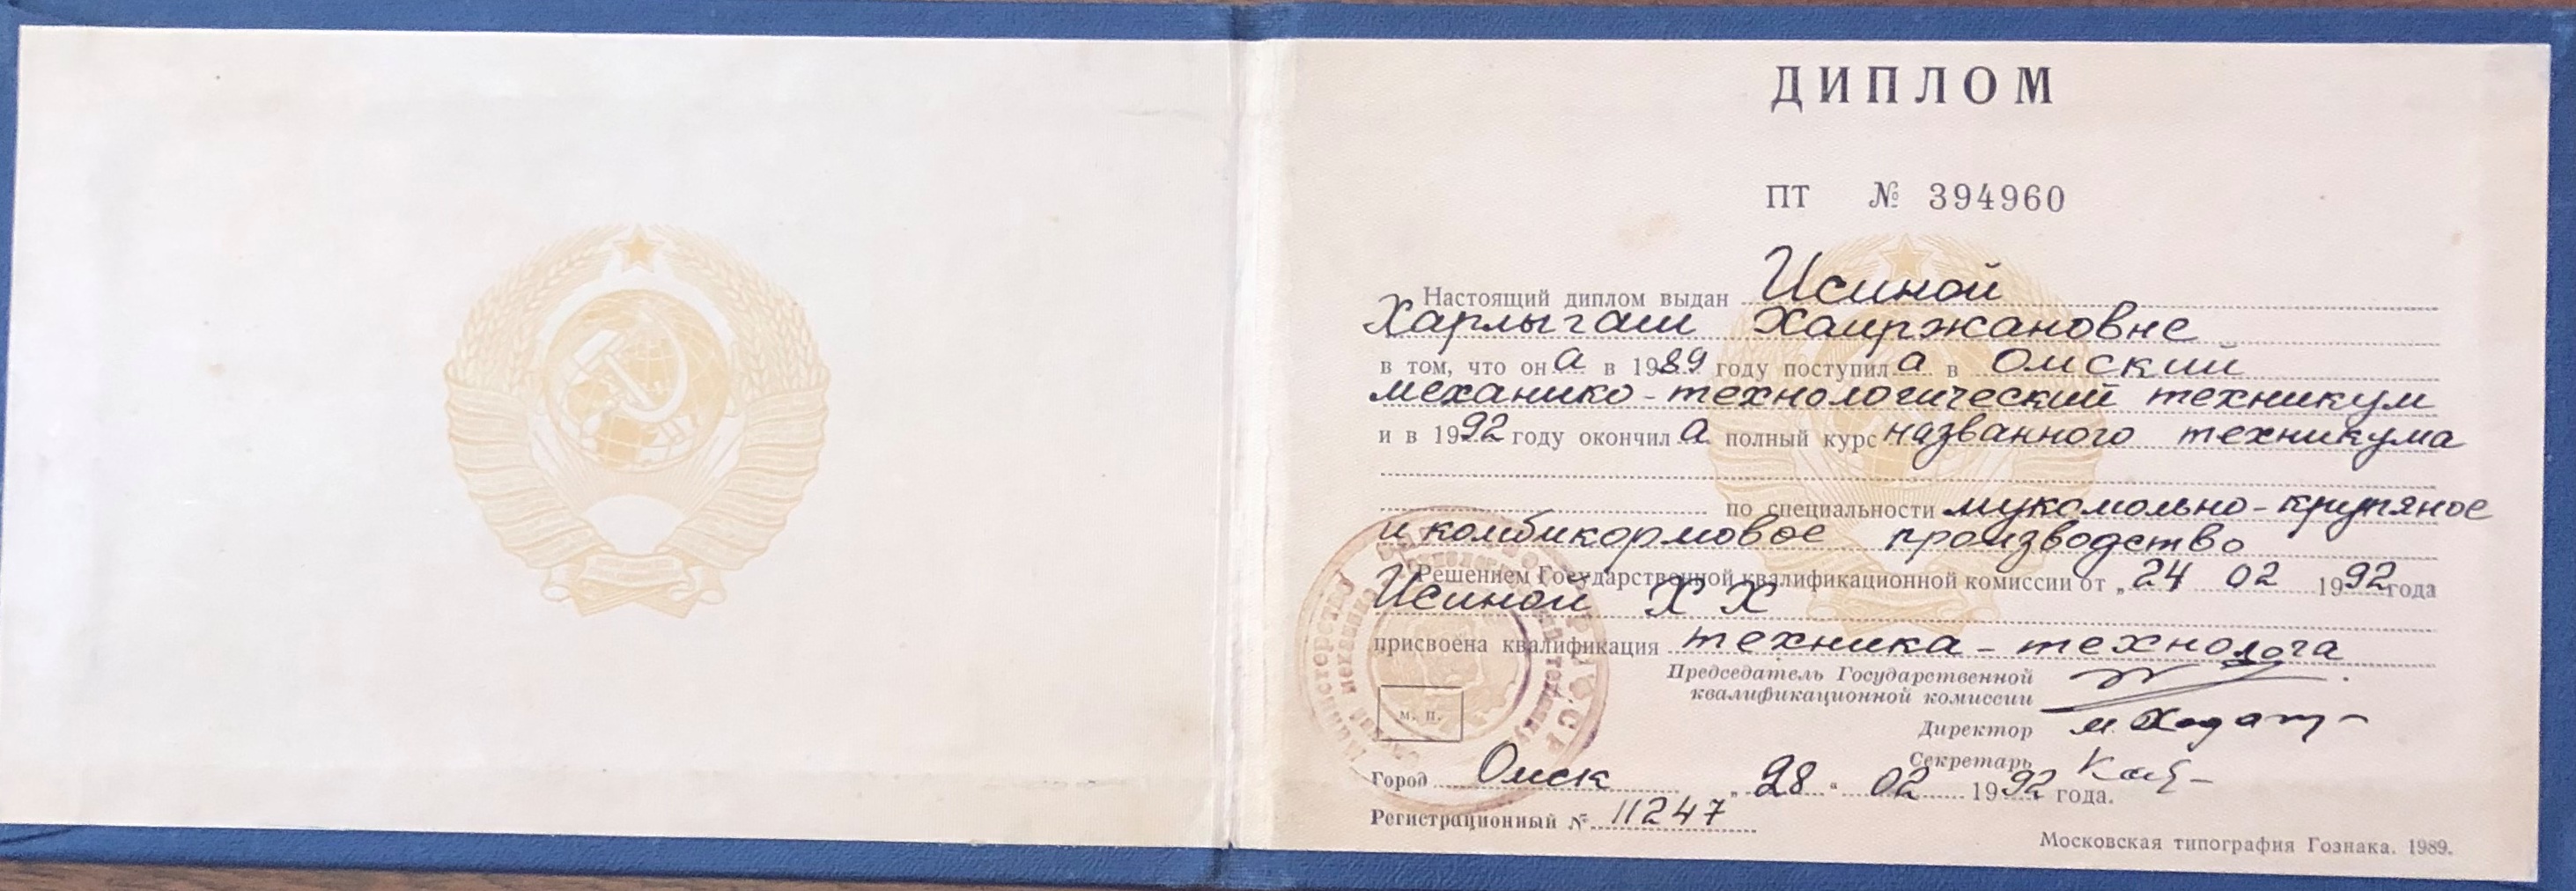 ДИПЛОМ
ПТ № 394960
Настоящий диплом выдан Исиной
Харлыгаш Хаиржановне
в том, что она в 1989 году поступила в Омский
механико-технологический техникум
и в 1992 году окончила полный курс названного техникума
по специальности мукомольно-крупяное
и комбикормовое производство
Решением Государственной квалификационной комиссии от „24 02 1992 года
Исиной Х Х
присвоена квалификация техника-технолога
Председатель Государственной
квалификационной комиссии
Директор
Секретарь
м. п.
Город Омск „28“ 02 1992 года.
Регистрационный № 11247
Московская типография Гознака. 1989.